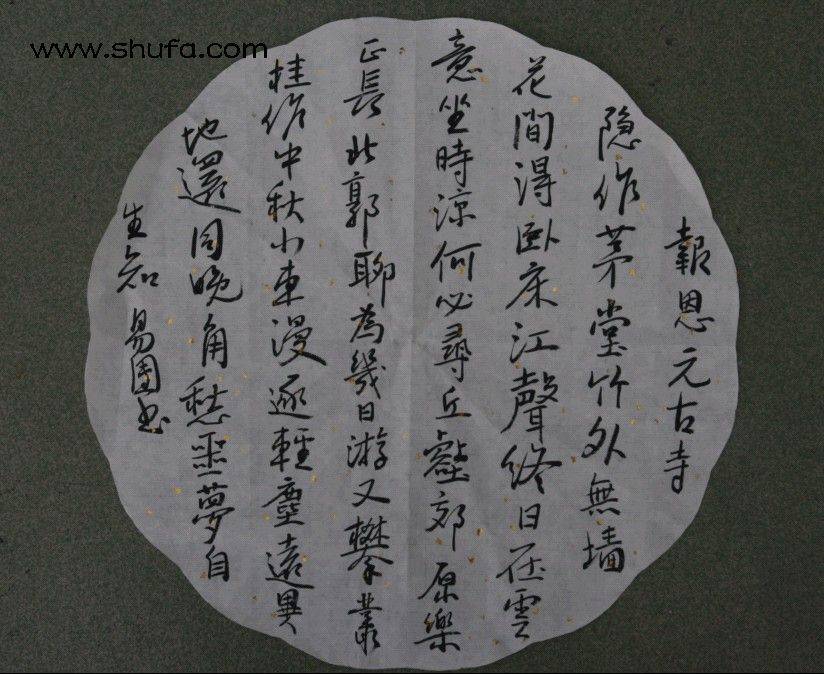 www.shufa.com
報恩元古寺
隐作茅堂竹外無墙
花間得卧床江聲終日在雲
意坐時涼何必尋丘壑郊原樂
正長北郭聊為幾日游又攀叢
桂作中秋小車漫逐輕塵遠異
地還同晚角愁噩夢自
生知 易園书